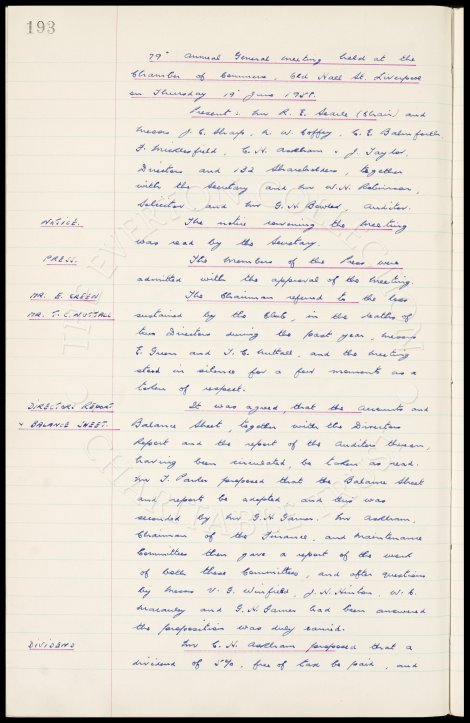 193
79th Annual General Meeting held at the
Chamber of Commerce, Old Hall St. Liverpool
on Thursday 19th June 1958.
Present: Mr R. E. Searle (Chair) and
Messrs J. C. Sharp, N. W. Coffey, C. E. Balmforth
F. Micklesfield, C. H. Askham & J. Taylor,
Directors and 132 Shareholders, together
with the Secretary and Mr W. H. Robinson,
Solicitor and Mr G. H. Bowler, Auditor.
NOTICE. The notice convening the Meeting
was read by the Secretary.
PRESS. The Members of the Press were
admitted with the approval of the Meeting.
MR. E. GREEN The Chairman referred to the loss
MR. T. C. NUTTALL sustained by the Club, in the deaths of
two Directors during the past year, Messrs
E. Green and T. C. Nuttall, and the Meeting
stood in silence for a few moments as a
token of respect.
DIRECTORS REPORT It was agreed, that the Accounts and
& BALANCE SHEET. Balance Sheet, together with the Directors
Report and the report of the Auditors thereon,
having been circulated, be taken as read.
Mr T. Parker proposed that the Balance Sheet
and reports be adopted and this was
seconded by Mr G. H. Garner. Mr Askham,
Chairman of the Finance, and Maintenance
Committees then gave a report of the work
of both these Committees, and after questions
by Messrs V. G. Winfield, J. H. Hinton, W. E.
Macauley and G. H. Garner had been answered
the proposition was duly carried.
DIVIDEND Mr C. H. Askham proposed that a
dividend of 5%, free of tax be paid, and